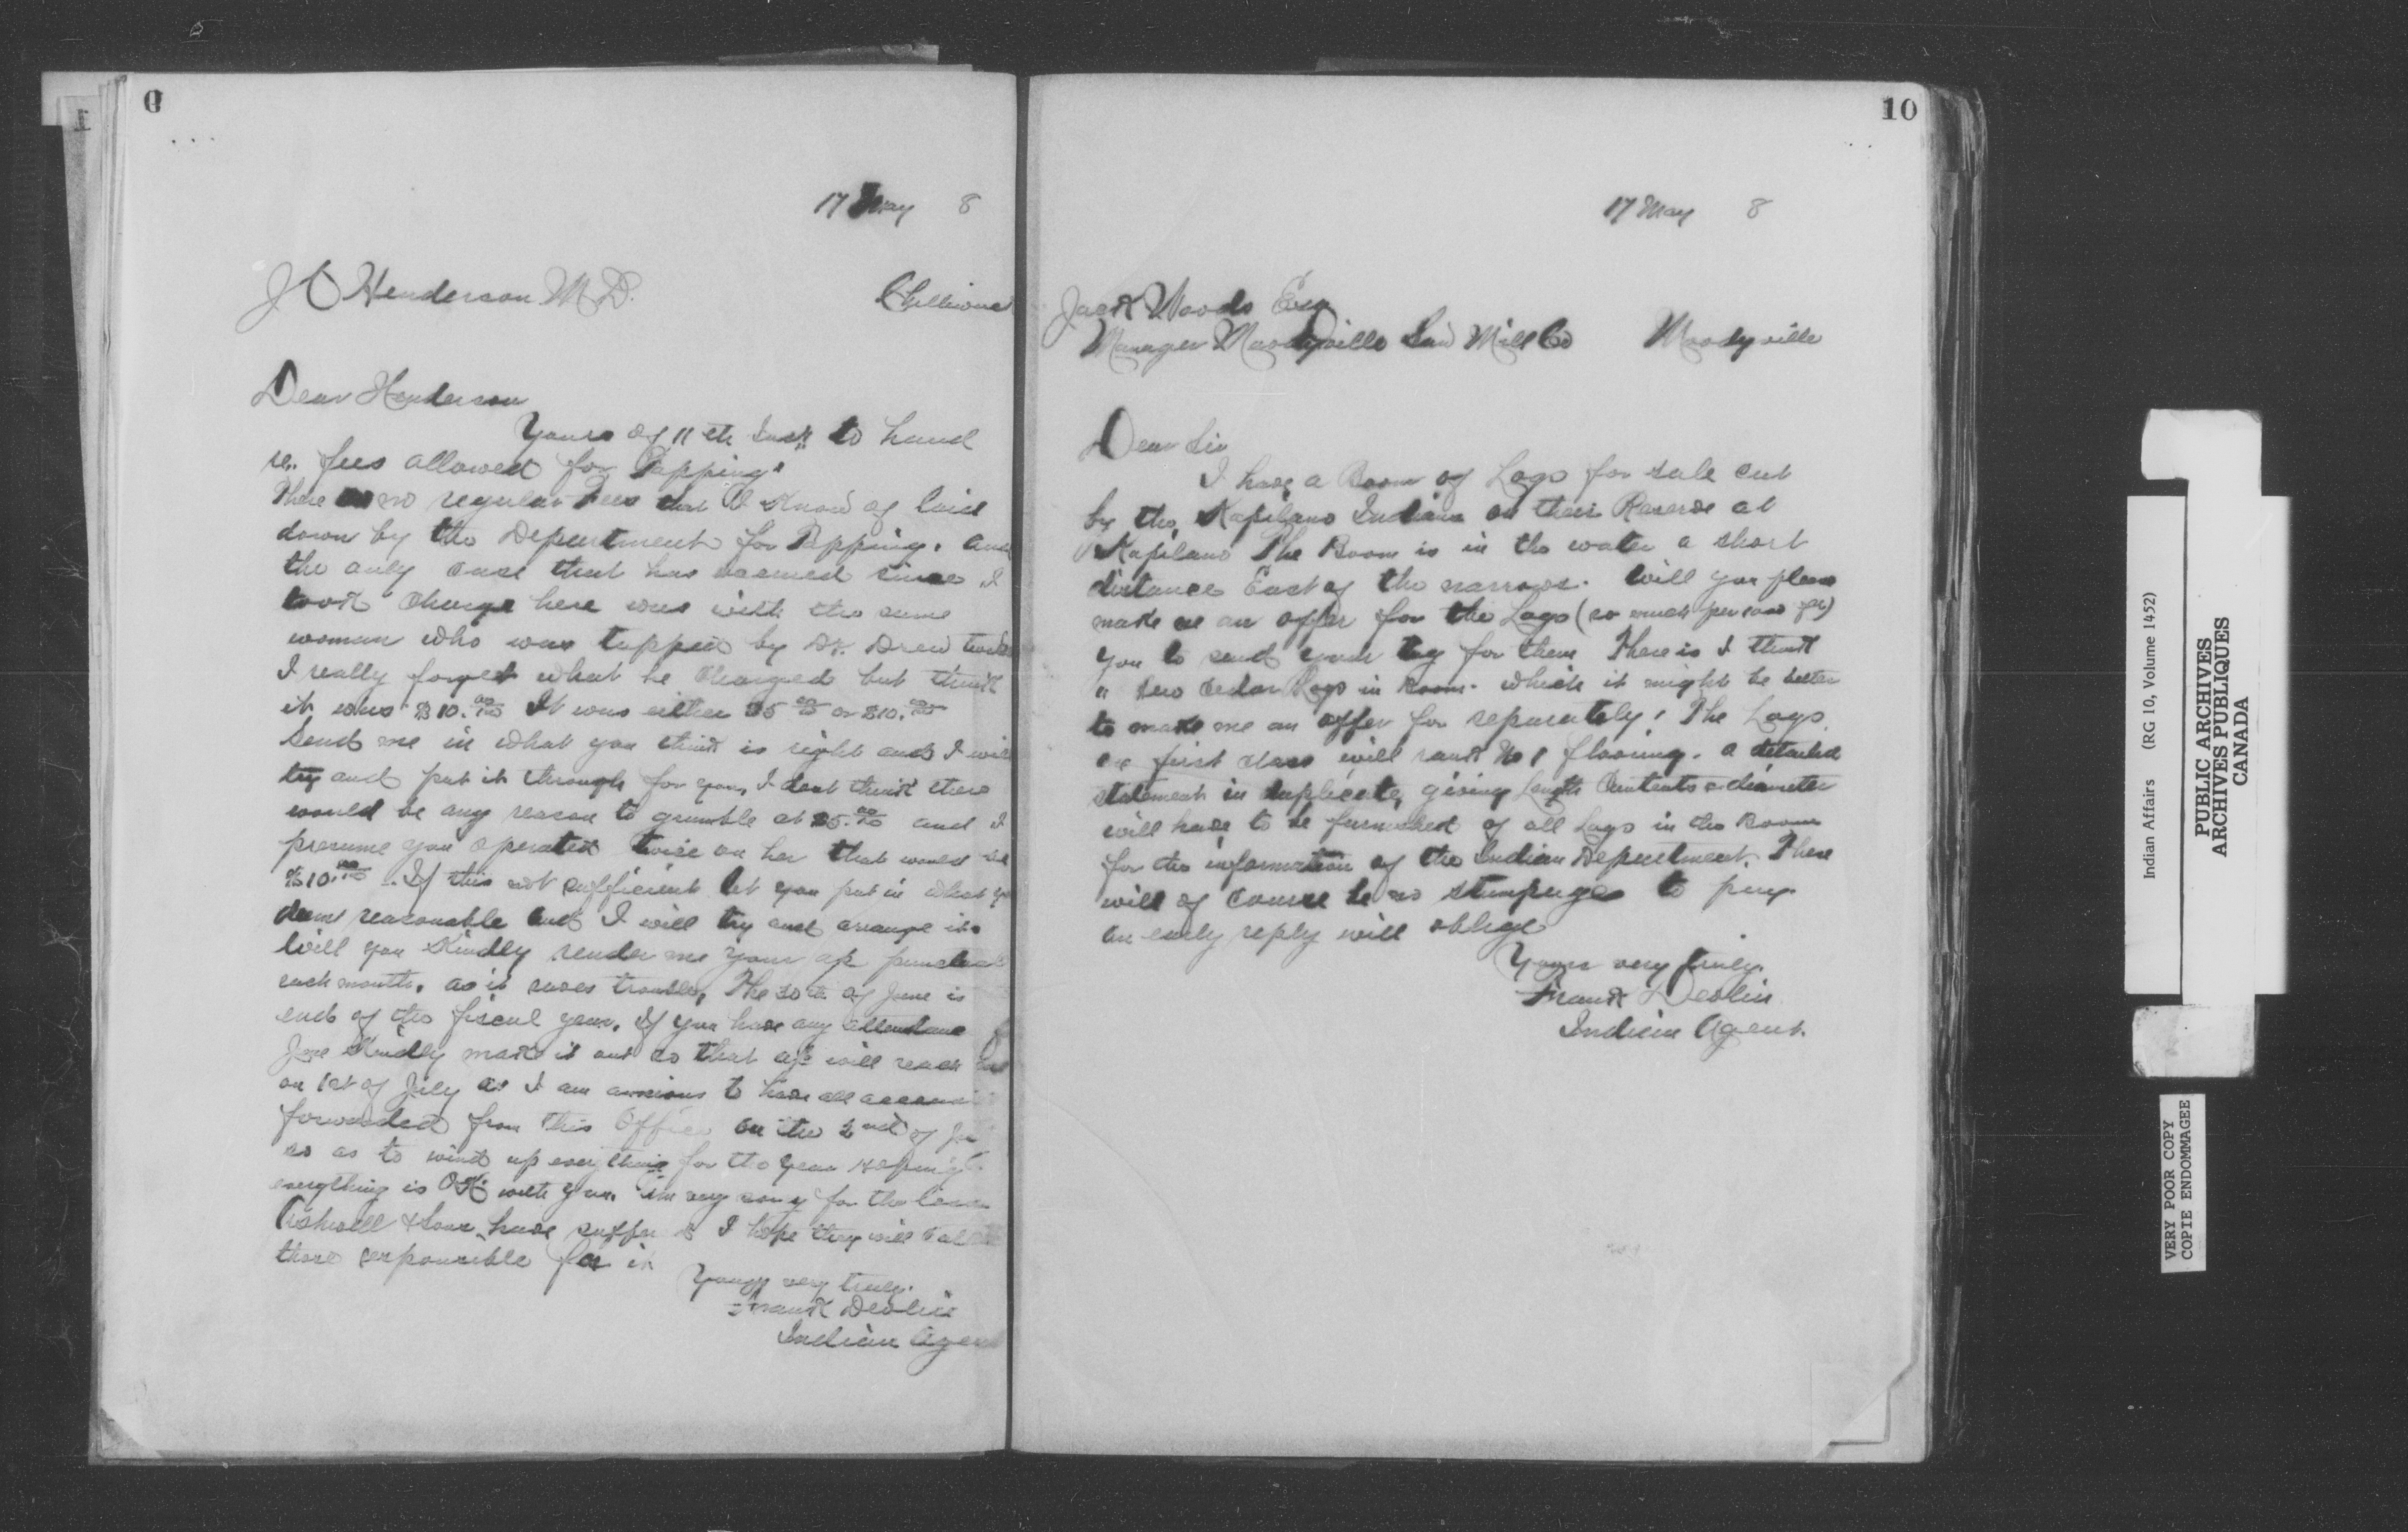 17 May 8
J C Henderson M D.
Dear Henderson
Yours of 11th Inst to hand
re. fees allowed for Tapping"
There no regular Fees that I Know of laid
down by the Department for Tapping. and
the only case that has since I
took Charge here was with the same
woman who was tapped by Dr. Drew
I really forget what he Charged but think
it was $10.00 It was either $5 00 or $10.00
Send me in what you think is right and I will
try and put it through for you, I dont think there
would be any reason to grumble at $5.00 and I
presume you operated twice on her that would be
$10.00. If this not sufficient let you put in what
deem reasonable and I will try and arrange it.
Will you Kindly render me your a/c
each month. as it saves trouble, The 30th of June is
end of the fiscal year. If you have any attendance
June Kindly make it out so that a/c will reach
on 1st of July as I am anxious to have all
forwarded from this Office on the 2nd of
so as to wind up everything for the year Hoping
everything is OK with you. I'm very sorry for the
Ashwell & Sons have I hope they will
those responsible for it
Yours very truly.
Frank Devlin
Indian Agent
10
17 May 8
Jack Woods Esq
Manager Moodyville Saw Mill Co Moodyville
Dear Sir
I have a Boom of Logs for sale cut
by the Kapilano Indians on their Reserve at
Kapilano The Boom is in the water a short
distance East of the narrows. Will you please
make me an offer for the Logs (so much per
you to send your tug for them There is I think
a few cedar Logs in Boom. which it might be better
to make me an offer for separately. The Logs
are first class will rank No 1 flooring. a detailed
statement in duplicate, giving Length Contents & diameter
will have to be furnished of all Logs in the Boom
for the information of the Indian Department. There
will of course be no stumpage to pay
an early reply will oblige
Yours very truly.
Frank Devlin
Indian Agent.
Indian Affairs (RG 10, Volume 1452)
PUBLIC ARCHIVES
ARCHIVES PUBLIQUES
CANADA
VERY POOR COPY
COPIE ENDOMMAGEE